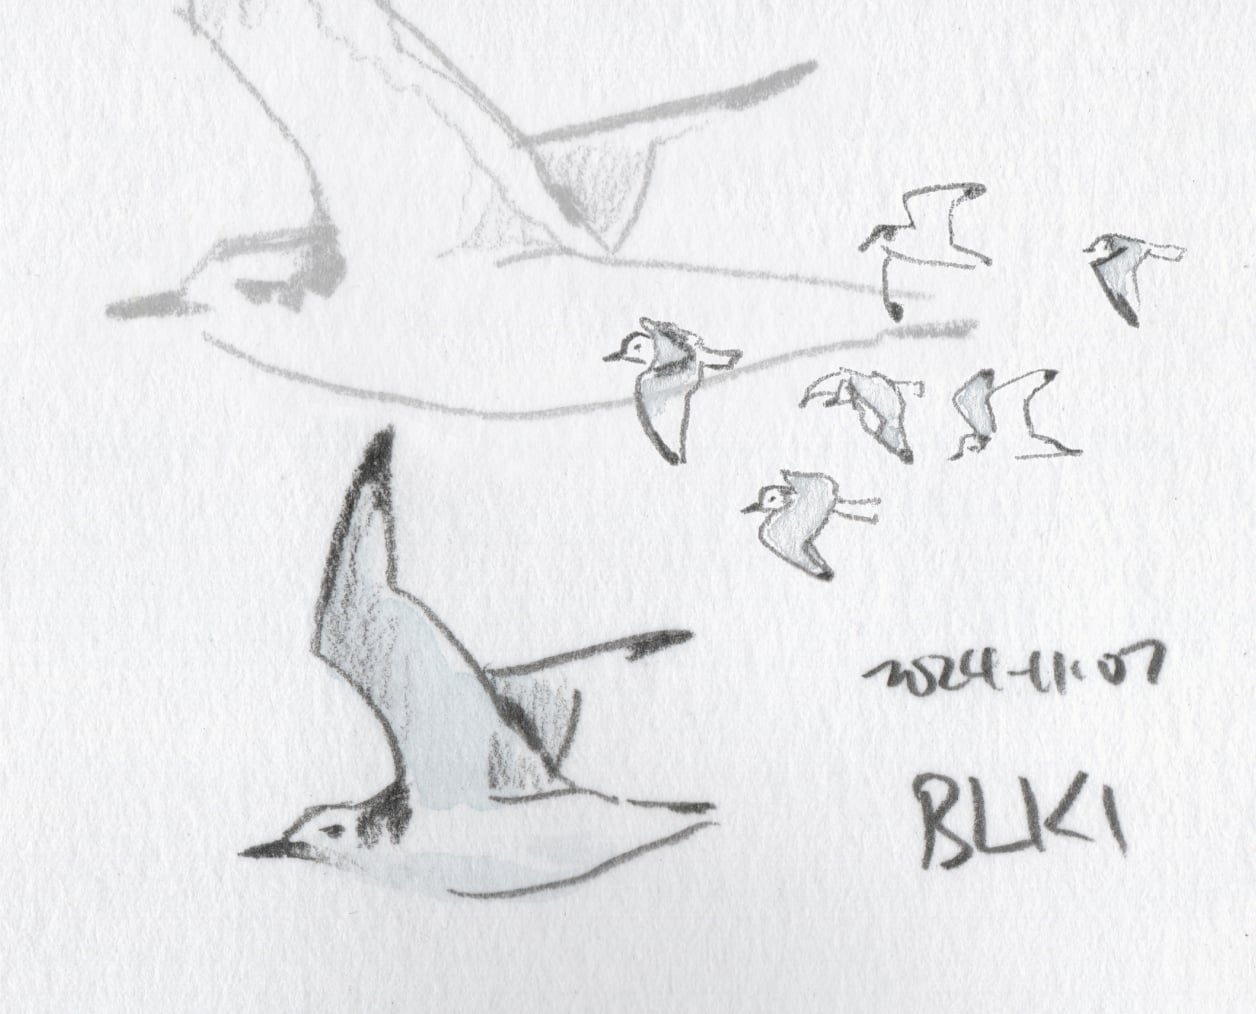 2024-11-07
BLKI